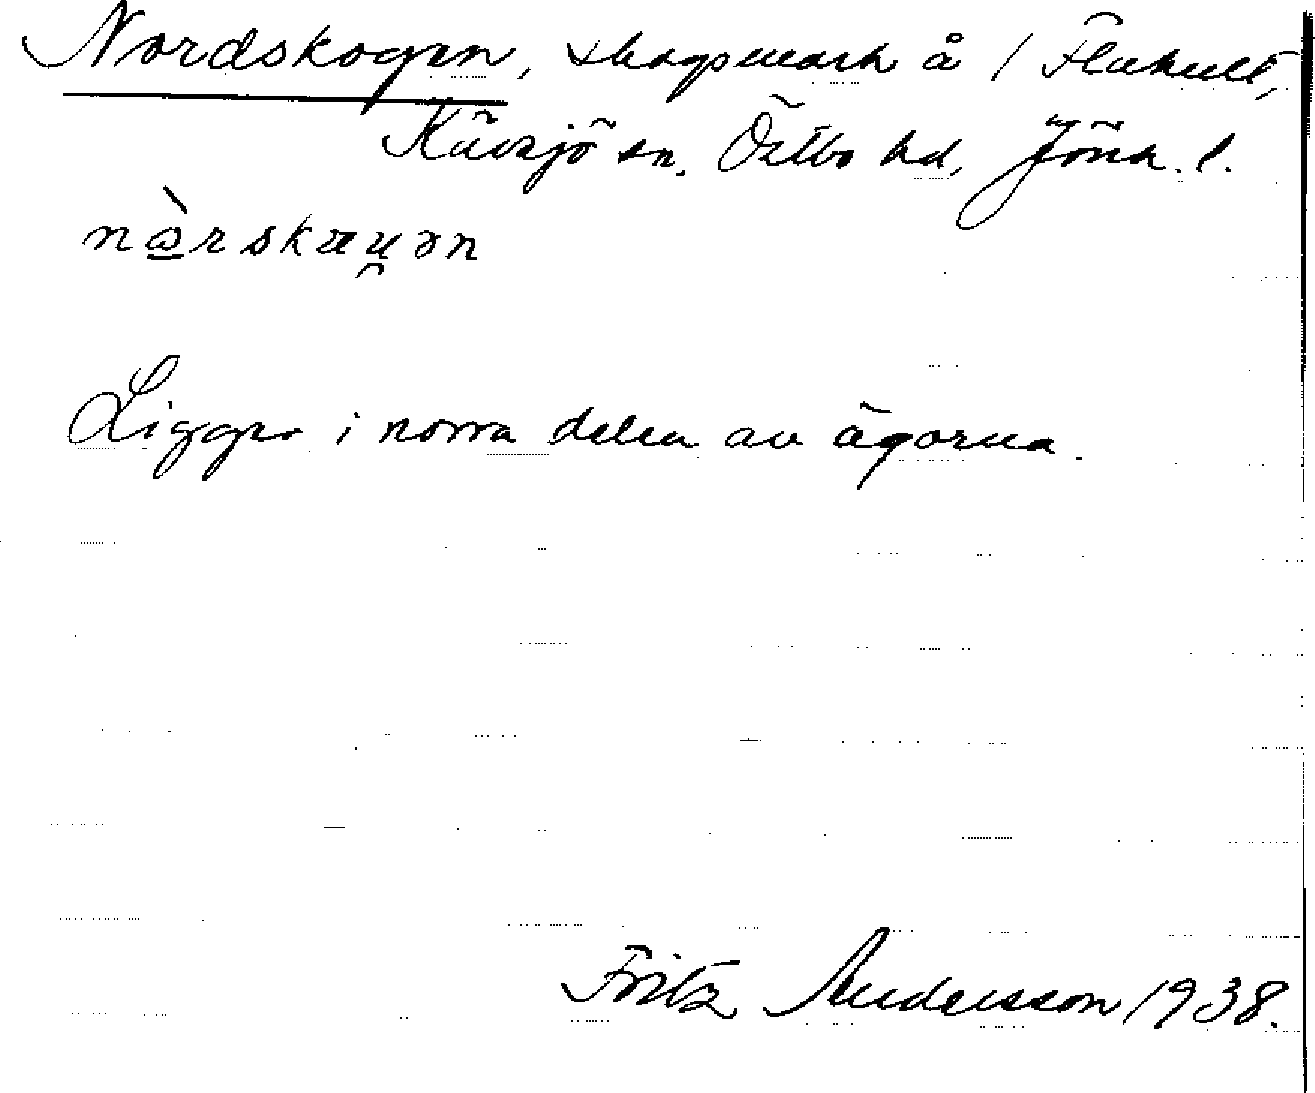 Nordskogen, skogsmark å / Flukult,
Kävsjö sn, Östbo hd, Jönk. l.
nàrskæu̯ən
Ligger i norra delen av ägorna.
Fritz Andersson 1938.